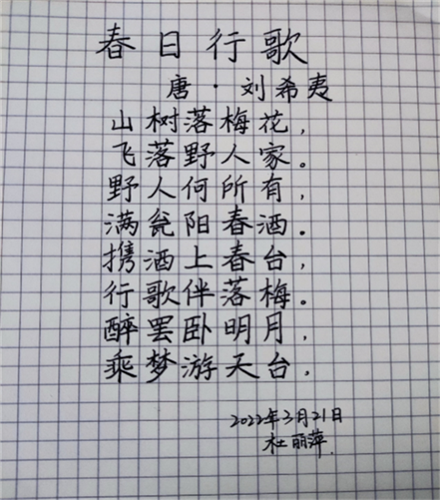 春日行歌
唐·刘希夷
山树落梅花，
飞落野人家。
野人何所有，
满瓮阳春酒。
携酒上春台，
行歌伴落梅。
醉罢卧明月，
乘梦游天台，
2022年3月21日
杜丽萍